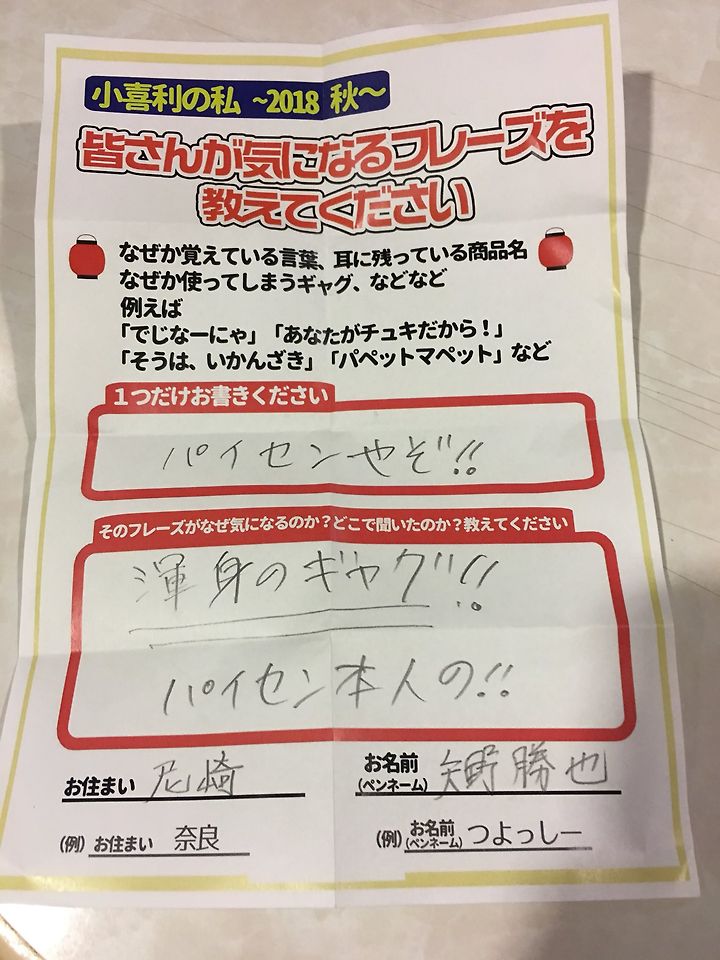 小喜利の私 ~2018 秋~
皆さんが気になるフレーズを
教えてください
なぜか覚えている言葉、耳に残っている商品名
なぜか使ってしまうギャグ、などなど
例えば
「でじなーにゃ」「あなたがチュキだから！」
「そうは、いかんざき」「パペットマペット」など
１つだけお書きください
パイセンやぞ!!
そのフレーズがなぜ気になるのか？どこで聞いたのか？教えてください
渾身のギャグ!!
パイセン本人の!!
お住まい 尼崎
お名前 (ペンネーム) 矢野勝也
(例) お住まい 奈良
(例) お名前 (ペンネーム) つよっしー